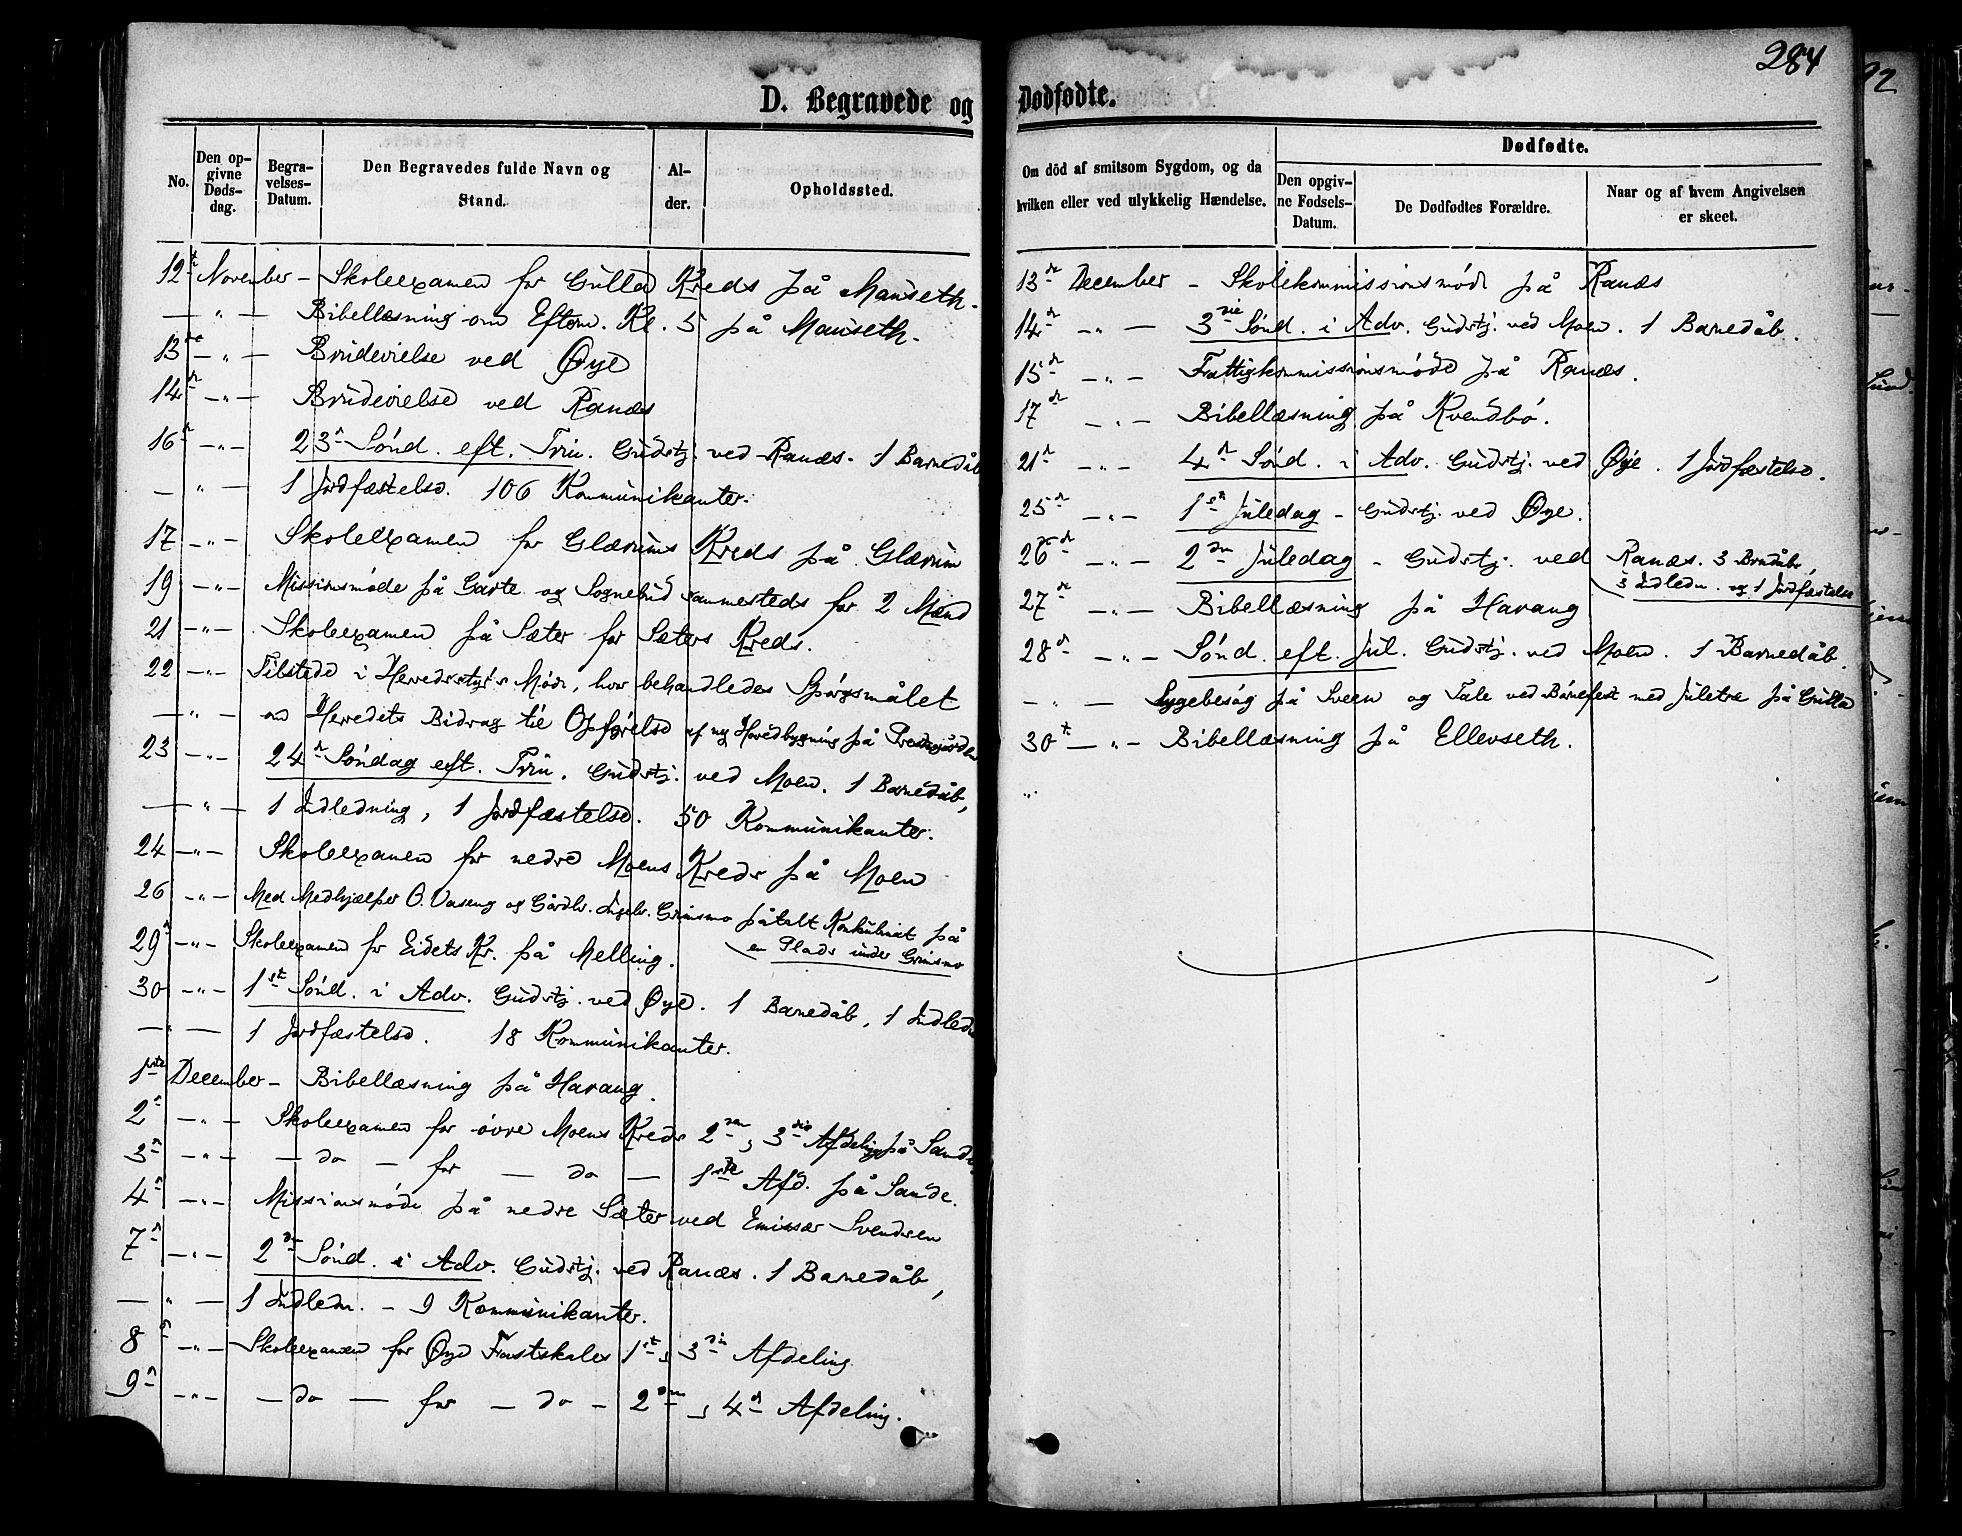 D. Begravede og
No.
Den op-
givne
Døds-
dag.
Begra-
velses-
Datum.
Den Begravedes fulde Navn og
Stand.
Al-
der.
Opholdssted.
12te November – Skoleexamen for Gulla Kreds på Mauseth.
— „ — Bibellæsning om Eftem. Kl. 5 på Mauseth.
13de — „ — Brudevielse ved Øye
14de — „ — Brudevielse ved Ranæs
16de — „ — 23de Sønd. eft. Trin. Gudstj. ved Ranæs. 1 Barnedåb
— „ — 1 Jordfæstelse. 106 Kommunikanter.
17 — „ — Skoleexamen for Glærums Kreds på Glærum
19 — „ — Missionsmøde på Garte og Sognebud sammesteds for 2 Mænd
21 — „ — Skoleexamen på Sæter for Sæters Kreds.
22 — „ — Tilstede i Herredsstyr's Møde, hvor behandledes Spørgsmålet
— „ — om Herredets Bidrag til Opførelse af ny Hovedbygning på Prestegården
23 — „ — 24de Søndag eft. Trin. Gudstj. ved Moen. 1 Barnedåb,
— „ — 1 Indledning, 1 Jordfæstelse. 50 Kommunikanter.
24 — „ — Skoleexamen for nedre Moens Kreds på Moen
26 — „ — Med Medhjælper O. Vaseng og Gårdbr. Ingebr. Grimsmo påtalt Konkubinat på
en Plads under Grimsmo
29de — „ — Skoleexamen for Eidets Kr. på Melling.
30 — „ — 1ste Sønd. i Adv. Gudstj. ved Øye. 1 Barnedåb, 1 Indledn
— „ — 1 Jordfæstelse. 18 Kommunikanter.
1ste December – Bibellæsning på Harang.
2de — „ — Skoleexamen for øvre Moens Kreds 2den, 3die Afdeling på Sande
3de — „ — — do — for — do — 1ste Afd. på Sande.
4de — „ — Missionsmøde på nedre Sæter ved Emissær Svendsen
7de — „ — 2den Sønd. i Adv. Gudstj. ved Ranæs. 1 Barnedåb,
— „ — 1 Indledn. – 9 Kommunikanter.
8de — „ — Skoleexamen for Øye Fastskoles 1ste, 3die Afdeling.
9de — „ — — do — for — do – 2den, 4de Afdeling.
284
Dødfødte.
Om död af smitsom Sygdom, og da
hvilken eller ved ulykkelig Hændelse.
Dødfødte.
Den opgiv-
ne Fødsels-
Datum.
De Dødfødtes Forældre.
Naar og af hvem Angivelsen
er skeet.
13de December – Skolekommissionsmøde på Ranæs
14de — „ — 3die Sønd. i Adv. Gudstj. ved Moen. 1 Barnedåb.
15de — „ — Fattigkommissionsmøde på Ranæs.
17de — „ — Bibellæsning på Kvendbø.
21de — „ — 4de Sønd. i Adv. Gudstj. ved Øye. 1 Jordfæstelse.
25de — „ — 1ste Juledag – Gudstj. ved Øye.
26de — „ — 2den Juledag – Gudstj. ved Ranæs. 3 Barnedåb,
3 Indledn. og 1 Jordfæstelse
27de — „ — Bibellæsning på Harang
28de — „ — Sønd. eft. Jul. Gudstj. ved Moen. 1 Barnedåb.
— „ — Sygebesøg på Sveen og Tale ved Børnefest med Juletræ på Gulla
30te — „ — Bibellæsning på Ellevseth.
„